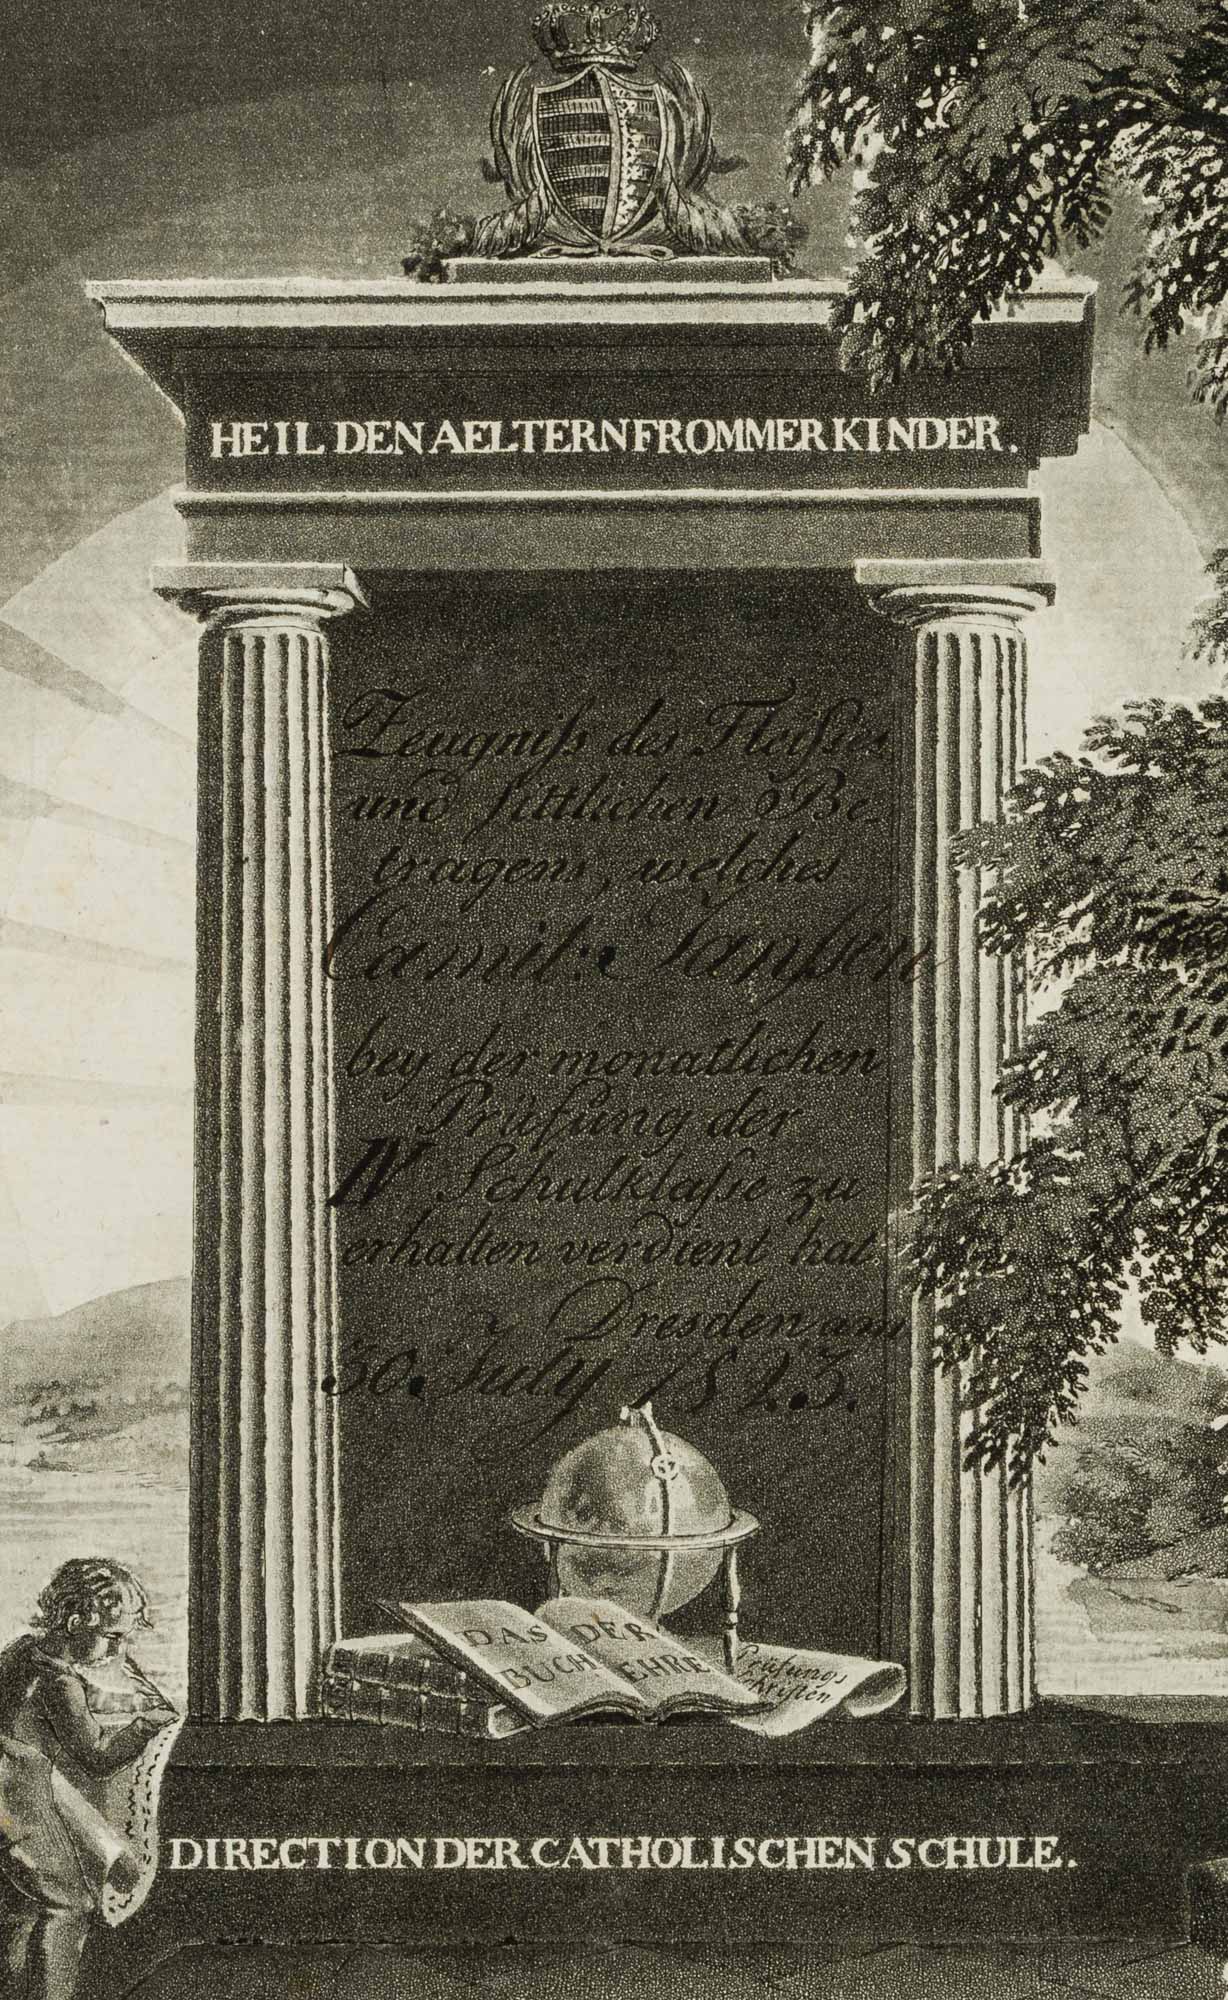 HEIL DEN AELTERN FROMMER KINDER.
Zeugniſs des Fleiſses
und ſittlichen Be-
tragens, welches
Camil: Janſsen
bey der monatlichen
Prüfung der
IV Schulklaſse zu
erhalten verdient hat.
Dresden am
30. July 1823.
DAS BUCH
DER EHRE
Prüfungs
ſchriften
DIRECTION DER CATHOLISCHEN SCHULE.